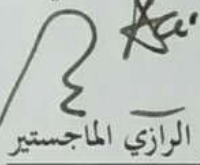 الرازي الماجستير